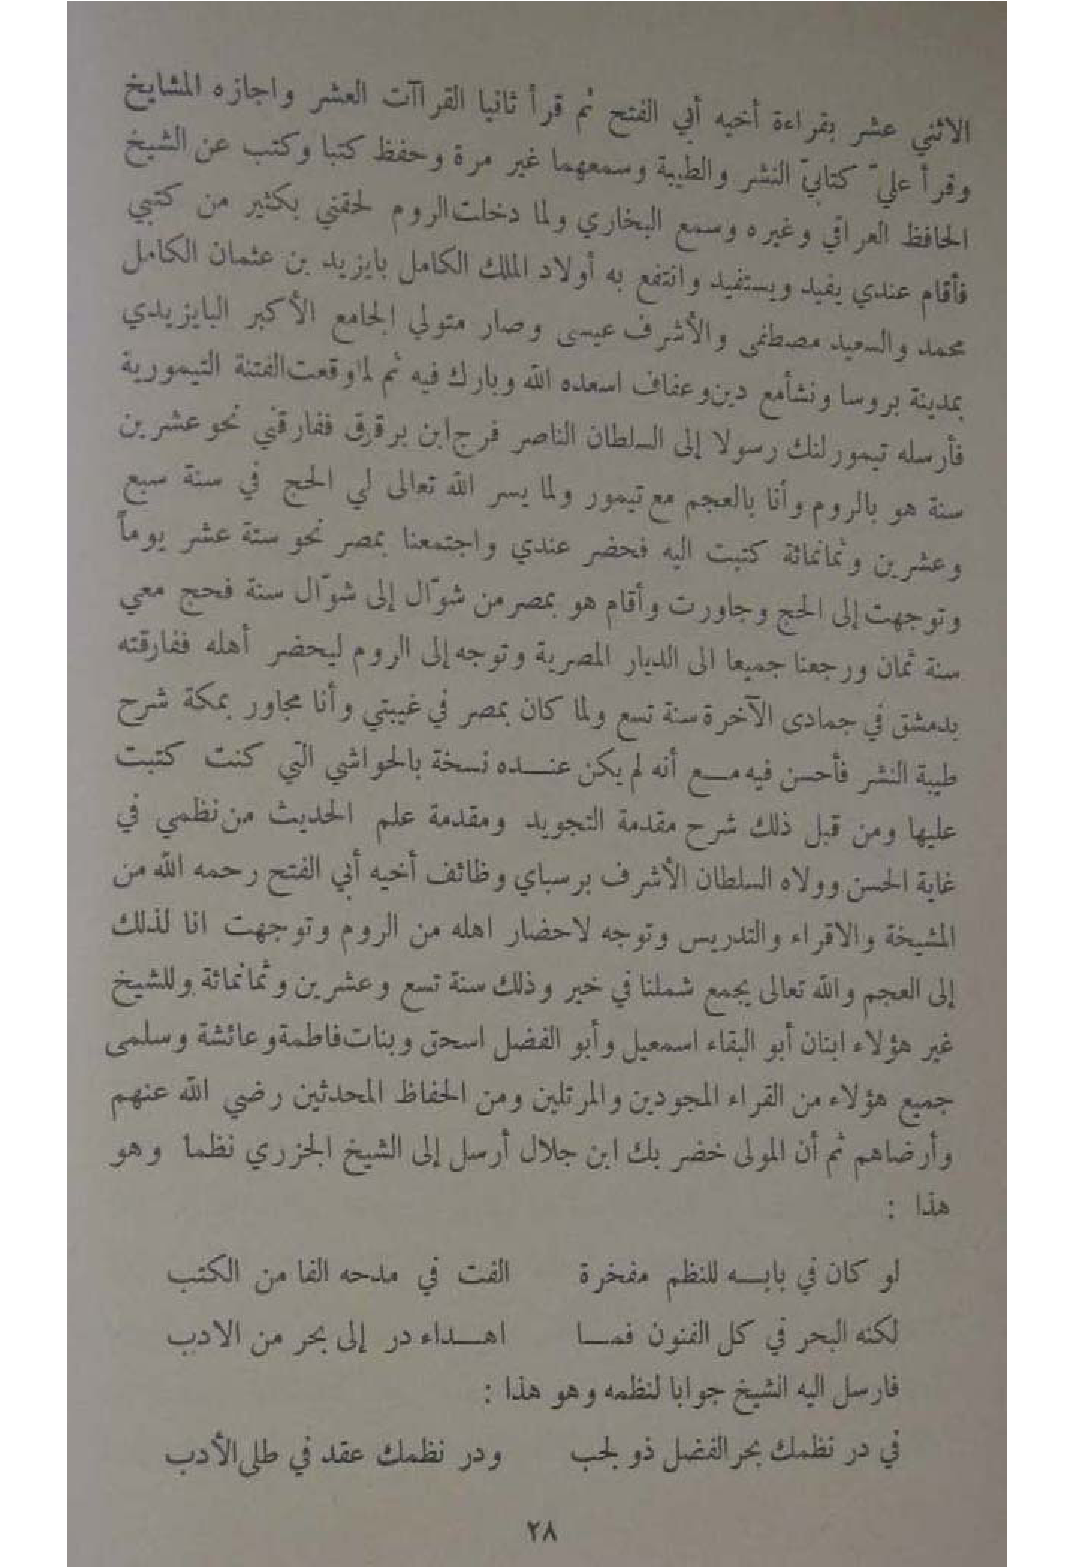 الاثني عشر بقراءة أخيه أبي الفتح ثم قرأ ثانيا القراآت العشر واجازه المشايخ
وقرأ عليّ كتابيّ النشر والطيبة وسمعهما غير مرة وحفظ كتبا وكتب عن الشيخ
الحافظ العراقي وغيره وسمع البخاري ولما دخلت الروم لحقني بكثير من كتبي
فأقام عندي يفيد ويستفيد وانتفع به أولاد الملك الكامل بايزيد بن عثمان الكامل
محمد والسعيد مصطفى والأشرف عيسى وصار متولي الجامع الأكبر البايزيدي
بمدينة بروسا ونشأ مع دين وعفاف اسعده الله وبارك فيه ثم لما وقعت الفتنة التيمورية
فأرسله تيمورلنك رسولا إلى السلطان الناصر فرج ابن برقوق ففارقني نحو عشرين
سنة هو بالروم وأنا بالعجم مع تيمور ولما يسر الله تعالى لي الحج في سنة سبع
وعشرين وثمانمائة كتبت اليه فحضر عندي واجتمعنا بمصر نحو ستة عشر يوماً
وتوجهت إلى الحج وجاورت وأقام هو بمصر من شوّال إلى شوّال سنة فحج معي
سنة ثمان ورجعنا جميعا الى الديار المصرية وتوجه إلى الروم ليحضر أهله ففارقته
بدمشق في جمادى الآخرة سنة تسع ولما كان بمصر في غيبتي وأنا مجاور بمكة شرح
طيبة النشر فأحسن فيه مع أنه لم يكن عنده نسخة بالحواشي التي كنت كتبت
عليها ومن قبل ذلك شرح مقدمة التجويد ومقدمة علم الحديث من نظمي في
غاية الحسن وولاه السلطان الأشرف برسباي وظائف أخيه أبي الفتح رحمه الله من
المشيخة والاقراء والتدريس وتوجه لاحضار اهله من الروم وتوجهت انا لذلك
إلى العجم والله تعالى يجمع شملنا في خير وذلك سنة تسع وعشرين وثمانمائة وللشيخ
غير هؤلاء ابنان أبو البقاء اسمعيل وأبو الفضل اسحق وبنات فاطمة وعائشة وسلمى
جميع هؤلاء من القراء المجودين والمرتلين ومن الحفاظ المحدثين رضي الله عنهم
وأرضاهم ثم أن المولى خضر بك ابن جلال أرسل إلى الشيخ الجزري نظما وهو
هذا :
لو كان في بابه للنظم مفخرة الفت في مدحه الفا من الكتب
لكنه البحر في كل الفنون فما اهداء در إلى بحر من الادب
فارسل اليه الشيخ جوابا لنظمه وهو هذا :
في در نظمك بحر الفضل ذو لجب ودر نظمك عقد في طلى الأدب
٢٨